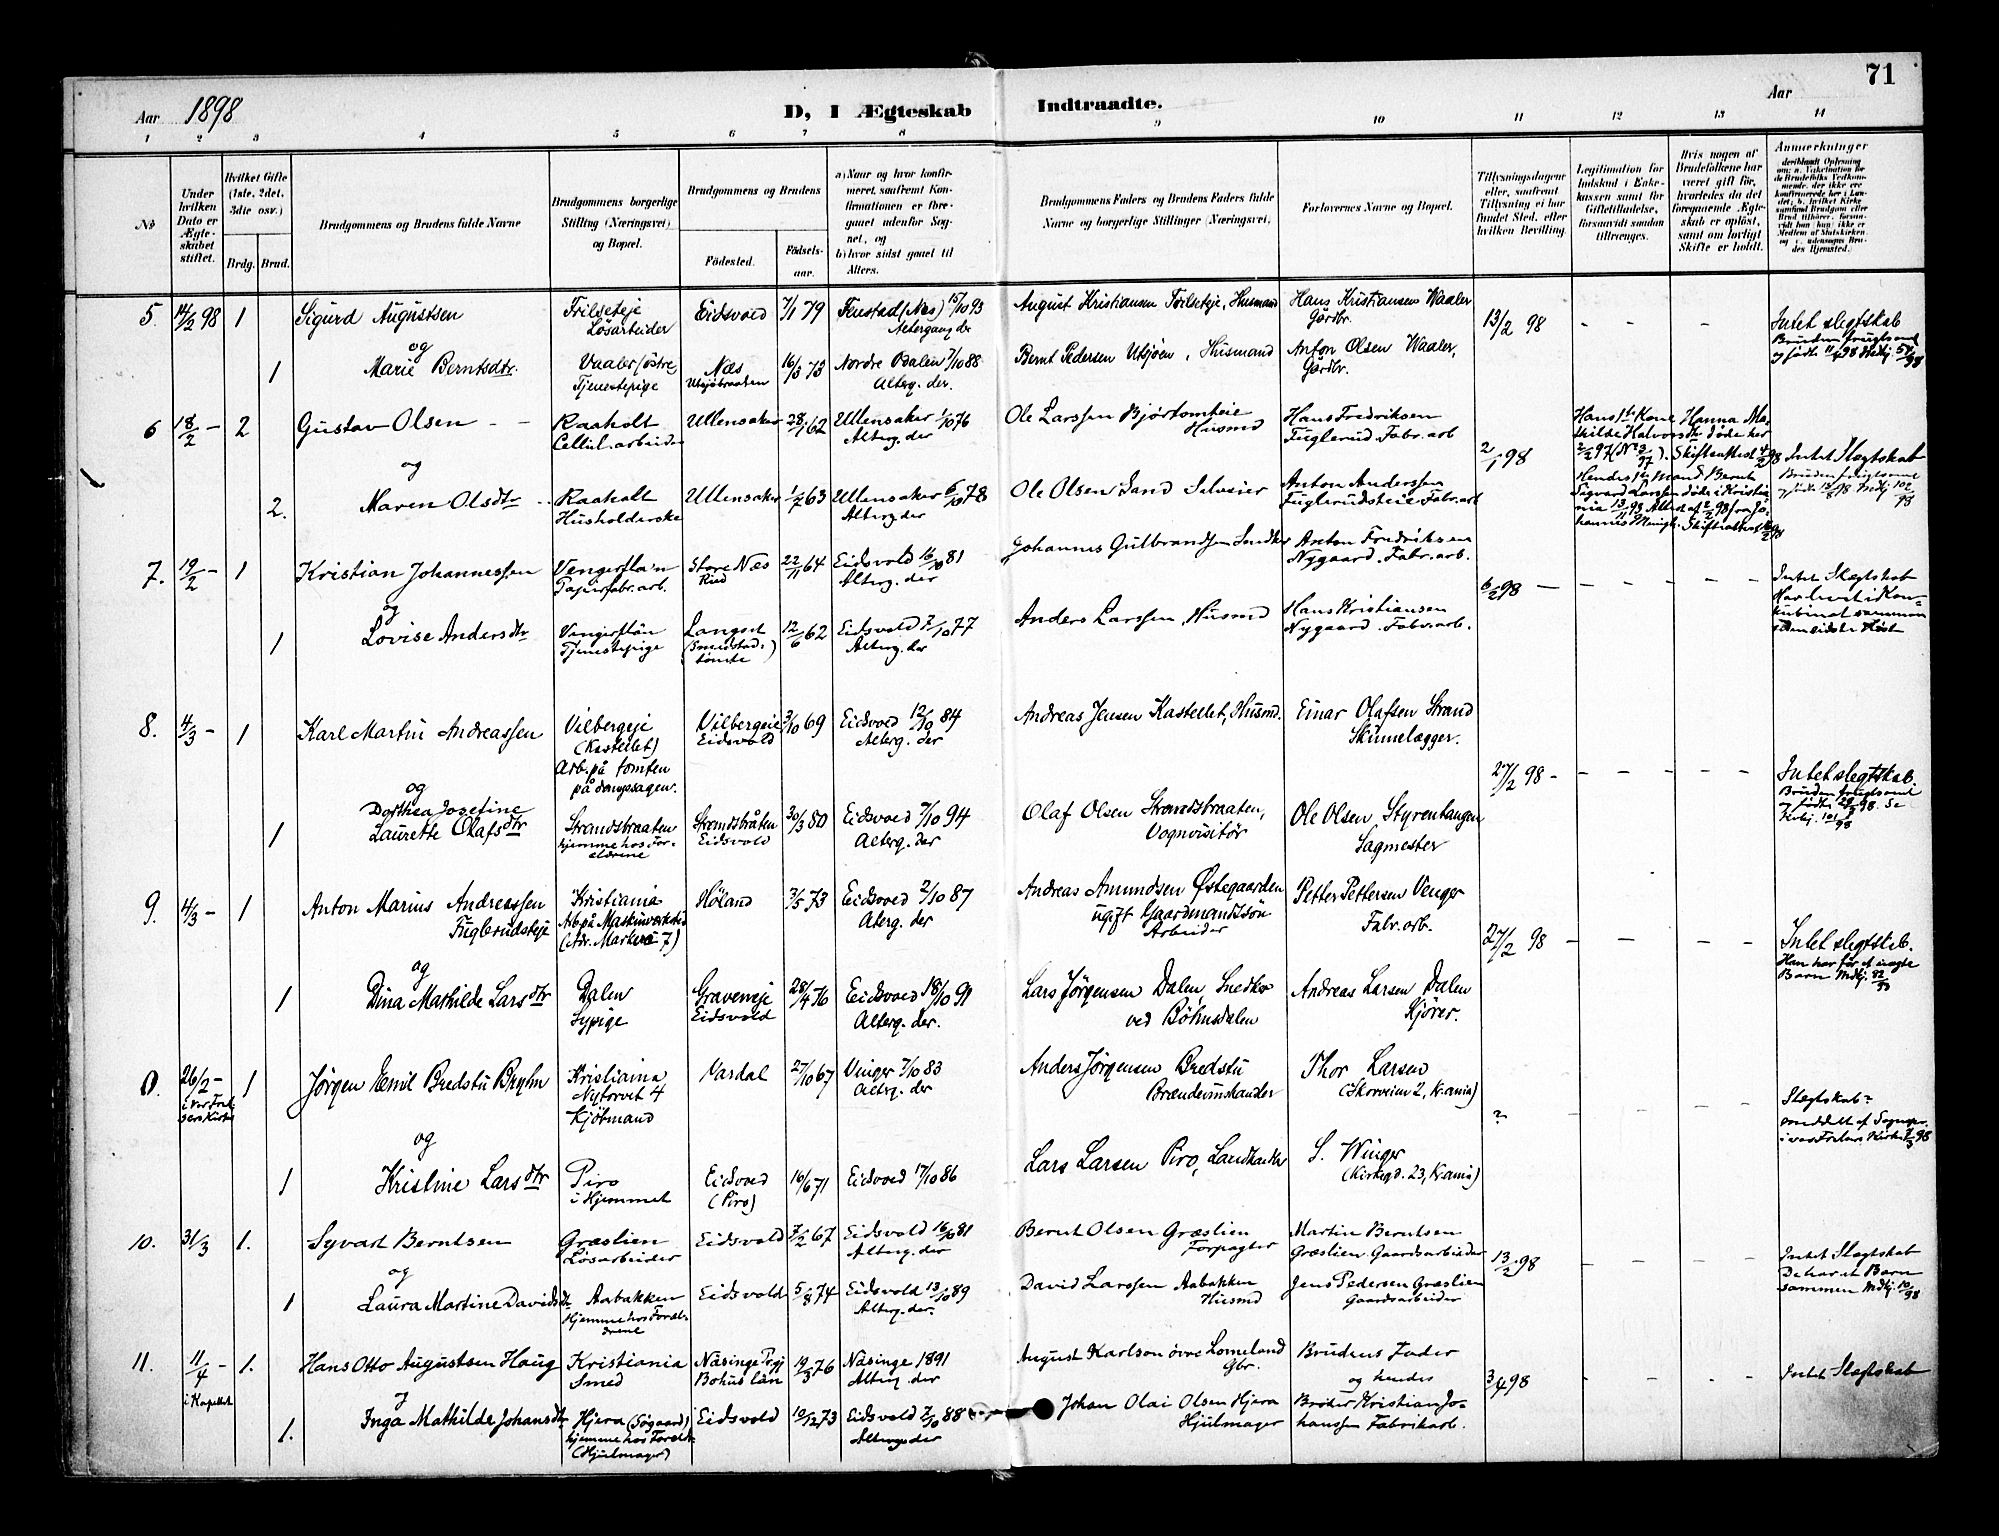 71
Aar 1898
D, I Ægteskab Indtraadte.
Aar
1 2 3 4 5 6 7 8 9 10 11 12 13 14
No
Under hvilken Dato er Ægteskabet stiftet.
Hvilket Gifte (1ste, 2det, 3die osv.)
Brdg. Brud.
Brudgommens og Brudens fulde Navne
Brudgommens borgerlige Stilling (Næringsvei) og Bopæl.
Brudgommens og Brudens
Födested. Födselsaar.
a) Naar og hvor konfirmeret, saafremt Konfirmationen er foregaaet udenfor Sognet, og
b) hvor sidst gaaet til Alters.
Brudgommens Faders og Brudens Faders fulde Navne og borgerlige Stillinger (Næringsvei).
Forlovernes Navne og Bopæl.
Tillysningsdagene eller, saafremt Tillysning ei har fundet Sted, efter hvilken Bevilling.
Legitimation for Indskud i Enkekassen samt for Giftetilladelse, forsaavidt saadan tiltrænges.
Hvis nogen af Brudefolkene har været gift för, hvorledes da det foregaaende Ægteskab er oplöst, samt om lovligt Skifte er holdt.
Anmerkninger
5. 14/2 98 1
Sigurd Augustsen
Frilseteje
Løsarbeider
Eidsvold 7/1 79
Fenstad (Næs) 15/10 93
Altergang der
August Kristiansen Frilseteje, Husmand
Hans Kristiansen Waaler
Gårdbr.
13/2 98 - - -
Intet slegtskab
Bruden frugtsom.
og
1
Marie Berntsdtr.
Vaaler østre
Tjenestepige
Næs
16/3 73
Nordre Odalen 7/10 88
Alterg. der.
Bernt Pedersen Utsjøen, Husmand
Anton Olsen Waaler,
Gårdbr.
6 18/2 - 2
Gustav Olsen
Raaholt
Cellul. arbeider
Ullensaker 28/1 62
Ullensaker 1/10 76
Alterg. der
Ole Larssen Bjørtomteie
Husmd
Hans Fredriksen
Fuglerud. Fabr. arb
2/1 98
Hans 1ste Kone Hanna Mathilde Halvorsdtr døde her
Intet Slægtskab
og
2.
Maren Olsdtr
Raaholt
Husholderske
Ullensaker 1/2 63
Ullensaker 6/10 78
Alterg. der
Ole Olsen Sand Selveier
Anton Anderssen
Fuglerudsteie Fabr. arb
Hendes 1ste Mand S Bernt
Sigvard Larssen døde i Kristiania
7. 19/2 - 1
Kristian Johannessen
Vengerflaen
Papirfabr. arb.
Store Næs
22/11 64
Eidsvold 16/10 81
Alterg. der
Johannes Gulbrandsen
Anton Fredriksen
Nygaard. Fabr. arb.
6/2 98 - - -
Intet Slægtskab
Har levet i Konkubinat sammen
siden sidste Høst
og
1
Lovise Andersdtr
Vengerflåen
Tjenestepige
Langset
12/6 62
Eidsvold 7/10 77
Alterg. der
Anders Larssen, Husmd
Hans Kristiansen
Nygaard. Fabr. arb.
8. 4/3 - 1
Karl Martin Andreassen
Vilbergeje
(Kastellet)
Arb. på tomten
på dampsagen.
Vilbergeie
Eidsvold
3/10 69
Eidsvold 12/10 84
Alterg. der
Andreas Jensen Kastellet, Husmd.
Einar Olafsen Strand
Skinnelægger.
27/2 98 - - - -
Intet slegtskab.
Bruden frugtsom
og
1
Dorthea Josefine
Laurette Olafsdtr
Strandbraaten
hjemme hos Forældrene
Strandbråten
Eidsvold
30/3 80
Eidsvold 7/10 94
Alterg. der
Olaf Olsen Strandsbraaten,
Vognvisitør
Ole Olsen Styrentangen
Sagmester
9. 4/3 - 1
Anton Marius Andreassen
Fuglerudsteje
Kristiania
Arb. på Maskinverksted
Høland 3/5 73
Eidsvold 2/10 87
Alterg. der
Andreas Amundsen Østegaarden
ugift Gaardmandssøn
Arbeider
Petter Pettersen Venger
Fabr. arb.
27/2 98 - - - -
Intet slegtskab.
Han har før et uægte
Barn
og
1
Dina Mathilde Larsdtr
Dalen
Sypige
Graveneje
Eidsvold
28/4 76
Eidsvold 18/10 91
Alterg. der.
Lars Jørgensen Dalen, Snedker
ved Bøhnsdalen
Andreas Larsen Dalen
Kjører.
0. 26/2 - 1
i Vor Frelsers Kirke
Jørgen Emil Bredstu Bryhn
Kristiania
Nytorvet 4
Kjøbmand
Vardal 27/10 67
Vinger 7/10 83
Alterg. der
Anders Jørgensen Bredstu
Thor Larsen
(Skorveien 2, Kr.ania)
? - - -
Slægtskab?
og
1
Kristine Larsdtr
Piro
i Hjemmet
Eidsvold
(Piro)
16/6 71
Eidsvold 17/10 86
Lars Larsen Piro, Landhandler
S. Winger
(Kirkegd. 23, Kr.ania)
10. 31/3 1.
Syvart Berntsen
Græslien
Løsarbeider
Eidsvold 7/2 67
Eidsvold 16/10 81
Alterg. der
Bernt Olsen Græslien
Forpagter
Martin Berntsen
Græslien Gaardsarbeider
13/2 98 - - -
Intet Slægtskab
De har et Barn
sammen Mdkj. 10/98
og
1
Laura Martine Davidsdtr
Aabakken
Hjemme hos Forældrene
Eidsvold 5/8 74
Eidsvold 13/10 89
Alterg. der.
David Larssen Aabakken
Husmd
Jens Pedersen Græslien
Gaardsarbeider
11. 11/4 - 1.
i Kapellet
Hans Otto Augustsen Haug
Kristiania
Smed
Näsinge Prgj
Bohus län
19/3 76
Näsinge 1891
Alterg. der
August Karlson övre Lomeland
Gbr.
Brudens Fader
og hendes
3/4 98 - - -
Intet Slægtskab
og
1.
Inga Mathilde Johansdtr
Hjera (Søgaard)
hjemme hos Foreldr.
(Hjulmager)
Eidsvold 10/12 73
Eidsvold 7/10 88
Alterg. der
Johan Olai Olsen Hjera
Hjulmager
Broder Kristian Johanssen Fabrikarb.